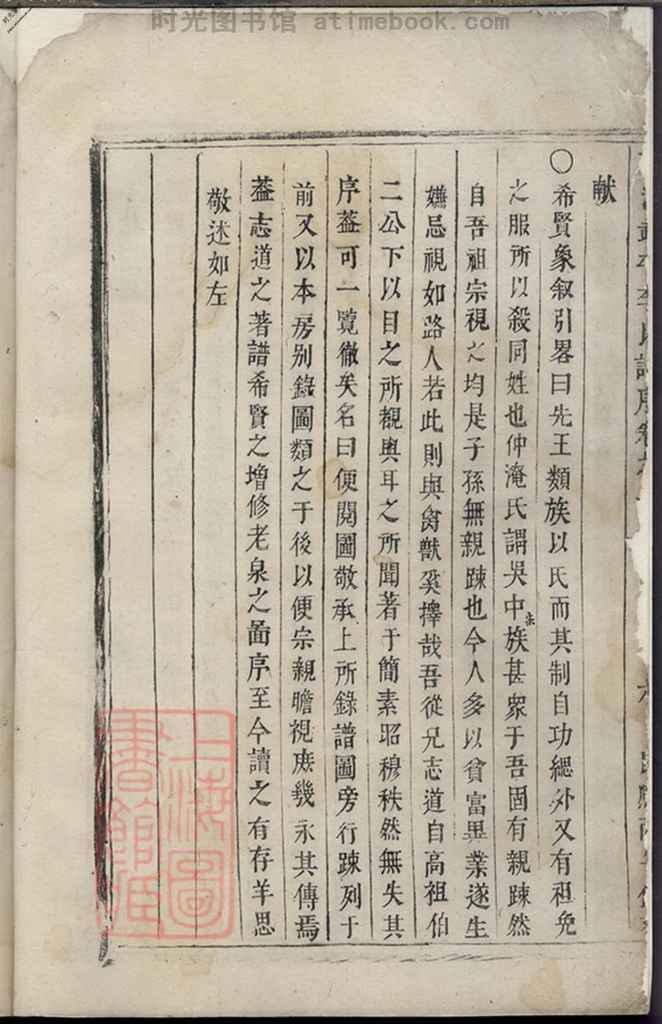 时光图书馆 atimebook.com
献
〇希賢象叙引畧曰先王類族以氏而其制自功緦外又有袒免
之服所以殺同姓也仲淹氏謂吳中宗族甚衆于吾固有親踈然
自吾祖宗視之均是子孫無親踈也今人多以貧富異業遂生
嫌忌視如路人若此則與禽獸奚擇哉吾從兄志道自高祖伯
二公下以目之所覩與耳之所聞著于簡素昭穆秩然無失其
序葢可一覽徹矣名曰便閱圖敬承上所錄譜圖旁行踈列于
前又以本房别錄圖類之于後以便宗親瞻視庶幾永其傳焉
葢志道之著譜希賢之增修老泉之啚序至今讀之有存羊思
敬述如左
上海圖書館藏